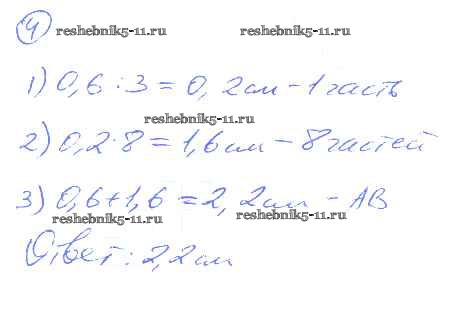 4
reshebnik5-11.ru reshebnik5-11.ru
1) 0,6 : 3 = 0,2см – 1 часть
reshebnik5-11.ru
2) 0,2·8 = 1,6см – 8 частей
3) 0,6+1,6 = 2,2см – АВ
reshebnik5-11.ru reshebnik5-11.ru
Ответ: 2,2см